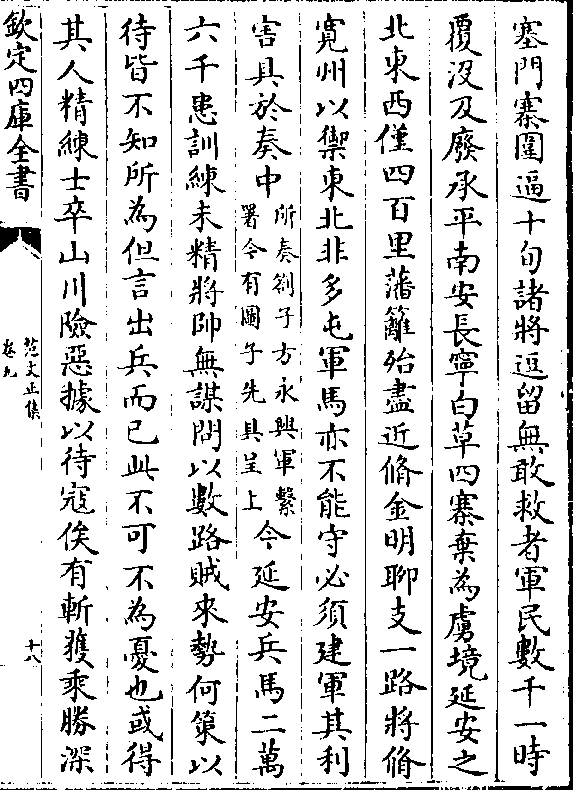 塞門寨圍逼十旬諸將逗留無敢救者軍民數千一時
覆没及廢承平南安長寧白草四寨棄為虜境延安之
北東西僅四百里藩籬殆盡近脩金明聊支一路將脩
寛州以禦東北非多屯軍馬亦不能守必須建軍其利
害具於奏中所奏劄子方永興軍繫署今有圖子先具呈上今延安兵馬二萬
六千患訓練未精將帥無謀問以數路賊來勢何策以
待皆不知所為但言出兵而已此不可不為憂也或得
其人精練士卒山川險惡據以待寇俟有斬獲乘勝深
欽定四庫全書
范文正集
卷九
十八